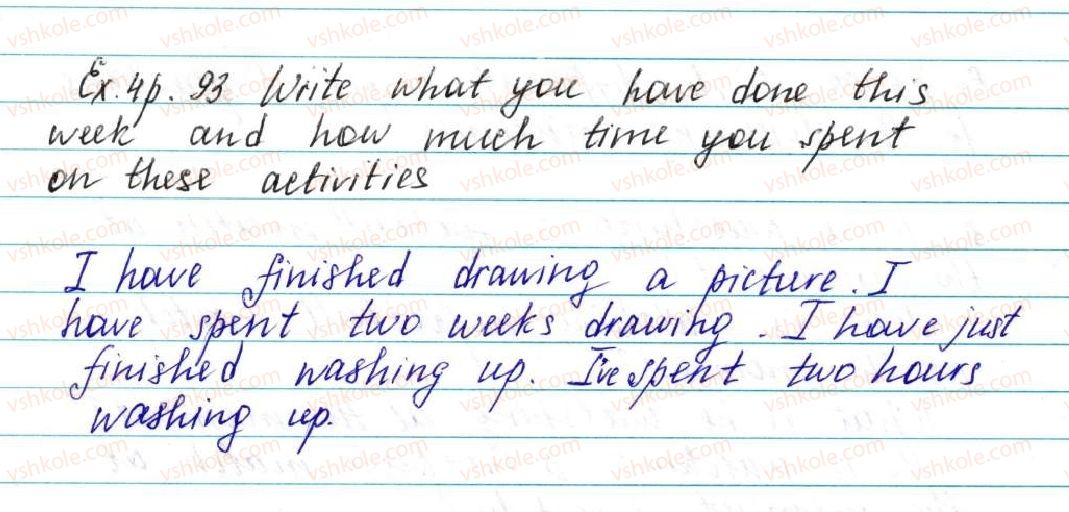 Ex. 4p. 93 Write what you have done this
week and how much time you spent
on these activities
I have finished drawing a picture. I
have spent two weeks drawing. I have just
finished washing up. I've spent two hours
washing up.